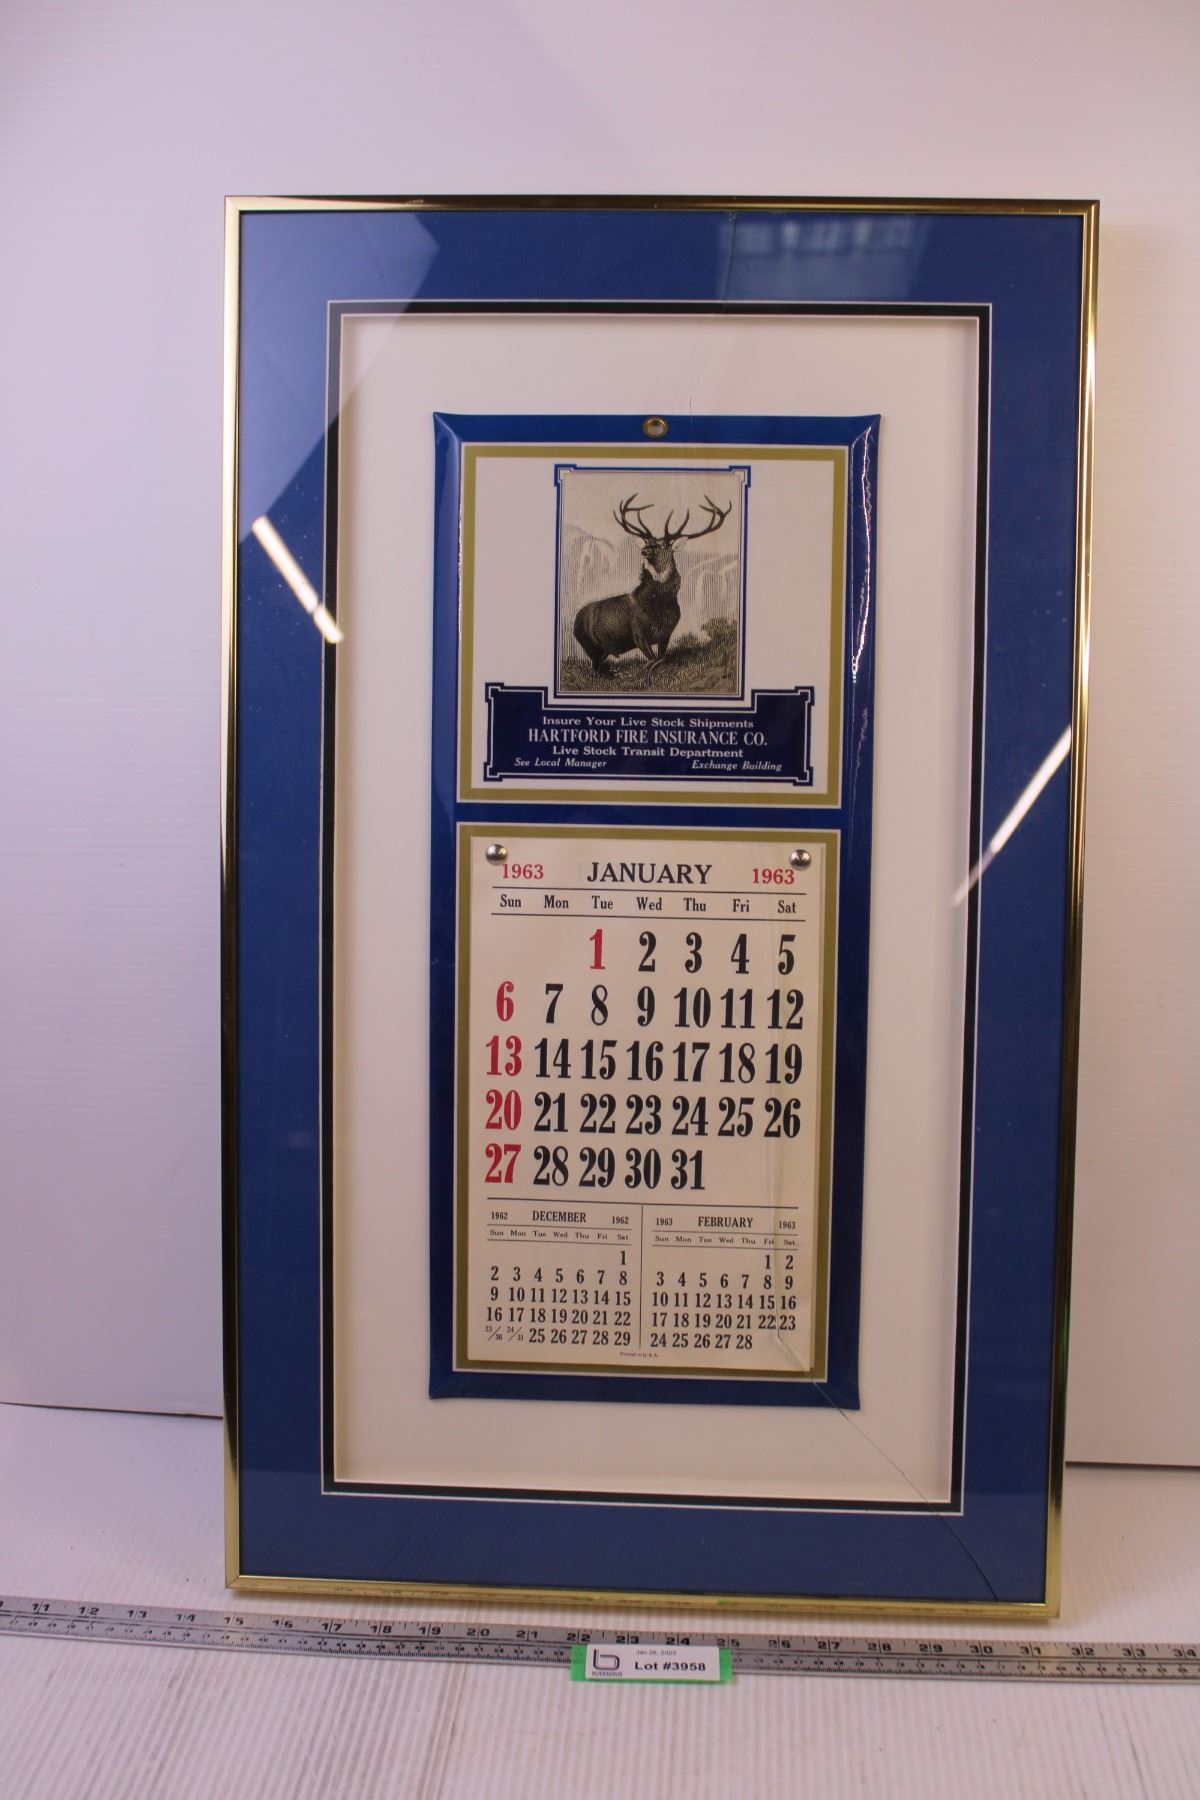 Insure Your Live Stock Shipments
HARTFORD FIRE INSURANCE CO.
Live Stock Transit Department
See Local Manager Exchange Building
1963 JANUARY 1963
Sun Mon Tue Wed Thu Fri Sat
1 2 3 4 5
6 7 8 9 10 11 12
13 14 15 16 17 18 19
20 21 22 23 24 25 26
27 28 29 30 31
1962 DECEMBER 1962
Sun Mon Tue Wed Thu Fri Sat
1
2 3 4 5 6 7 8
9 10 11 12 13 14 15
16 17 18 19 20 21 22
23/30 24/31 25 26 27 28 29
1963 FEBRUARY 1963
Sun Mon Tue Wed Thu Fri Sat
1 2
3 4 5 6 7 8 9
10 11 12 13 14 15 16
17 18 19 20 21 22 23
24 25 26 27 28
Printed in U. S. A.
11 12 13 14 15 16 17 18 19 20 21 22 23 24 25 26 27 28 29 30 31 32 33 34
Jan 28, 2023
b Lot #3958